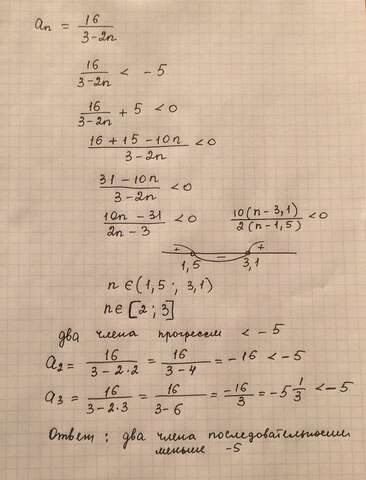 aₙ = 16/(3-2n)
16/(3-2n) < -5
16/(3-2n) + 5 < 0
(16+15-10n)/(3-2n) < 0
(31-10n)/(3-2n) < 0
(10n-31)/(2n-3) < 0    10(n-3,1)/2(n-1,5) < 0
+ - +
1,5 3,1
n ∈ (1,5 ; 3,1)
n ∈ [2 ; 3]
два члена прогрессии < -5
a₂ = 16/(3-2·2) = 16/(3-4) = -16 < -5
a₃ = 16/(3-2·3) = 16/(3-6) = -16/3 = -5 1/3 < -5
Ответ: два члена последовательности
меньше -5